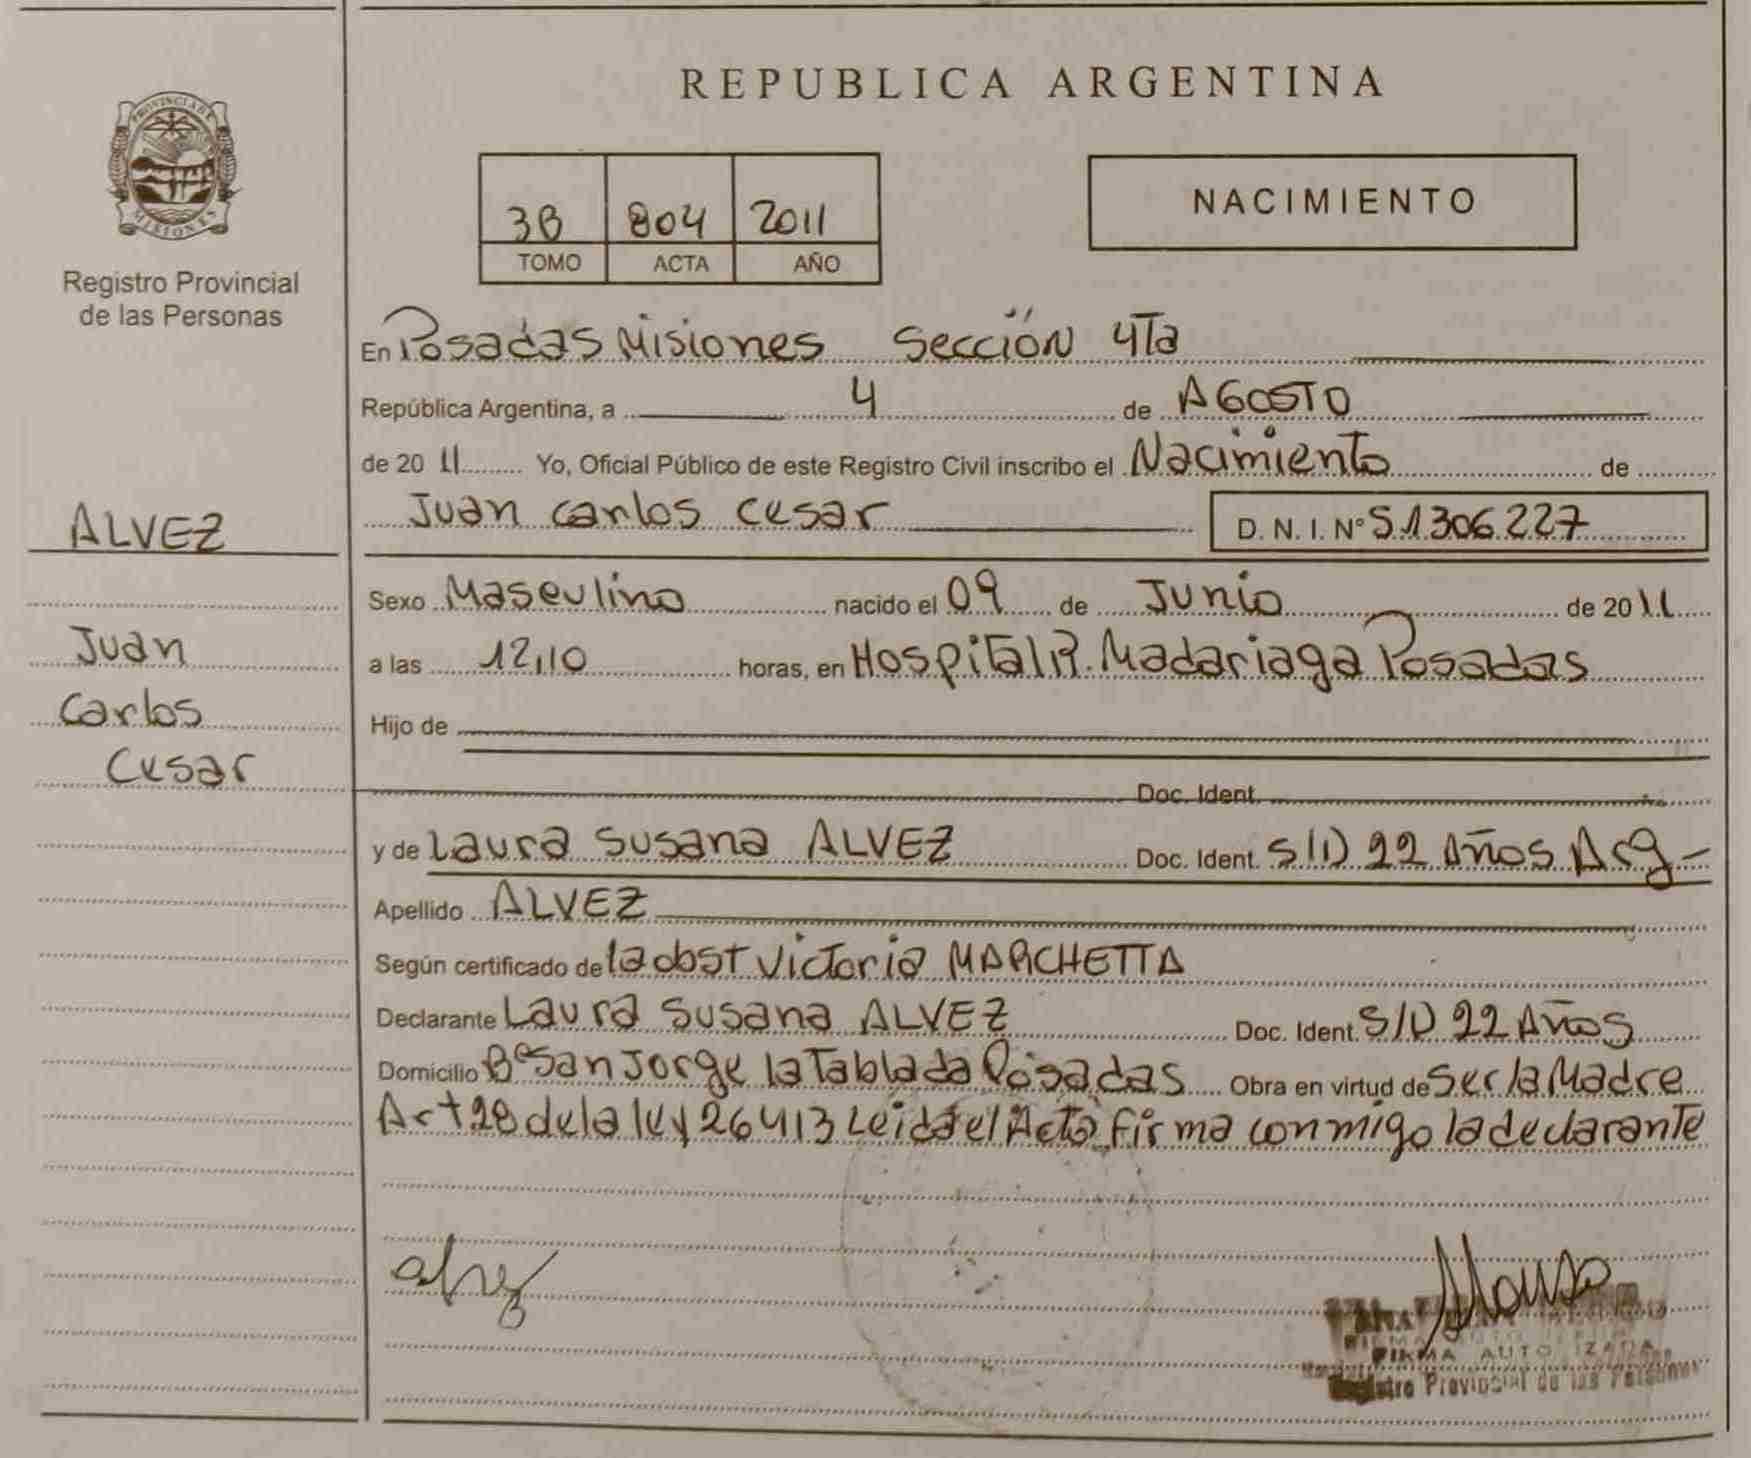 REPUBLICA ARGENTINA
PROVINCIA DE MISIONES
Registro Provincial
de las Personas
3B 804 2011
TOMO ACTA AÑO
NACIMIENTO
En Posadas Misiones Sección 4Ta
República Argentina, a 4 de AGOSTO
de 2011 Yo, Oficial Público de este Registro Civil inscribo el Nacimiento de
Juan Carlos Cesar D. N. I. N° 51306227
ALVEZ
Juan
Carlos
Cesar
Sexo Masculino nacido el 09 de Junio de 2011
a las 12,10 horas, en Hospital R. Madariaga Posadas
Hijo de
Doc. Ident.
y de Laura Susana ALVEZ Doc. Ident. S/D 22 Años Arg-
Apellido ALVEZ
Según certificado de la obst Victoria MARCHETTA
Declarante Laura Susana ALVEZ Doc. Ident. S/D 22 Años
Domicilio B° San Jorge la Tablada Posadas Obra en virtud de Ser la Madre
Art 28 de la ley 26413 Leida el Acta firma conmigo la declarante
Alvez
FIRMA AUTORIZADA
Registro Provincial de las Personas